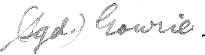 (Sgd.) Gowrie.